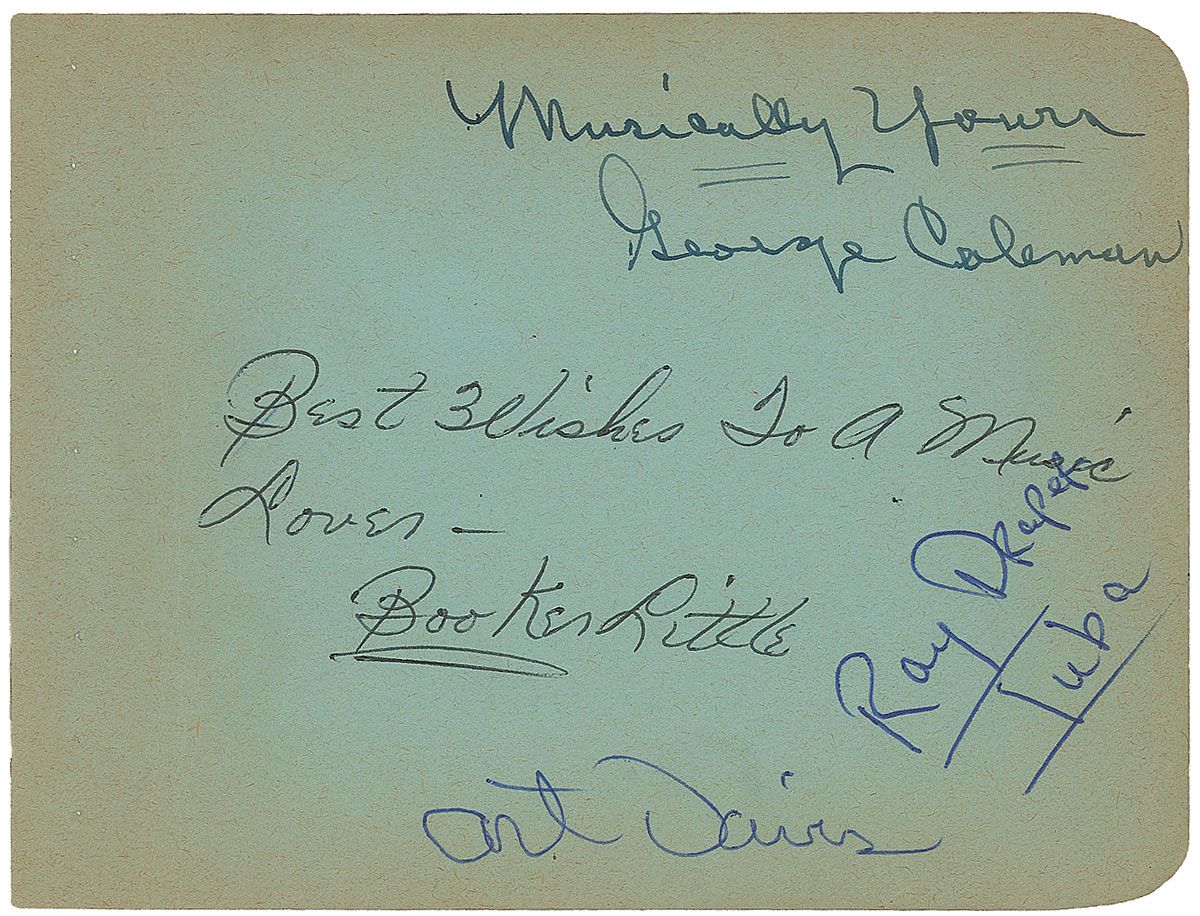 Musically Yours
George Coleman
Best Wishes To A Music
Lover —
Booker Little
Ray Draper
Tuba
Art Davis